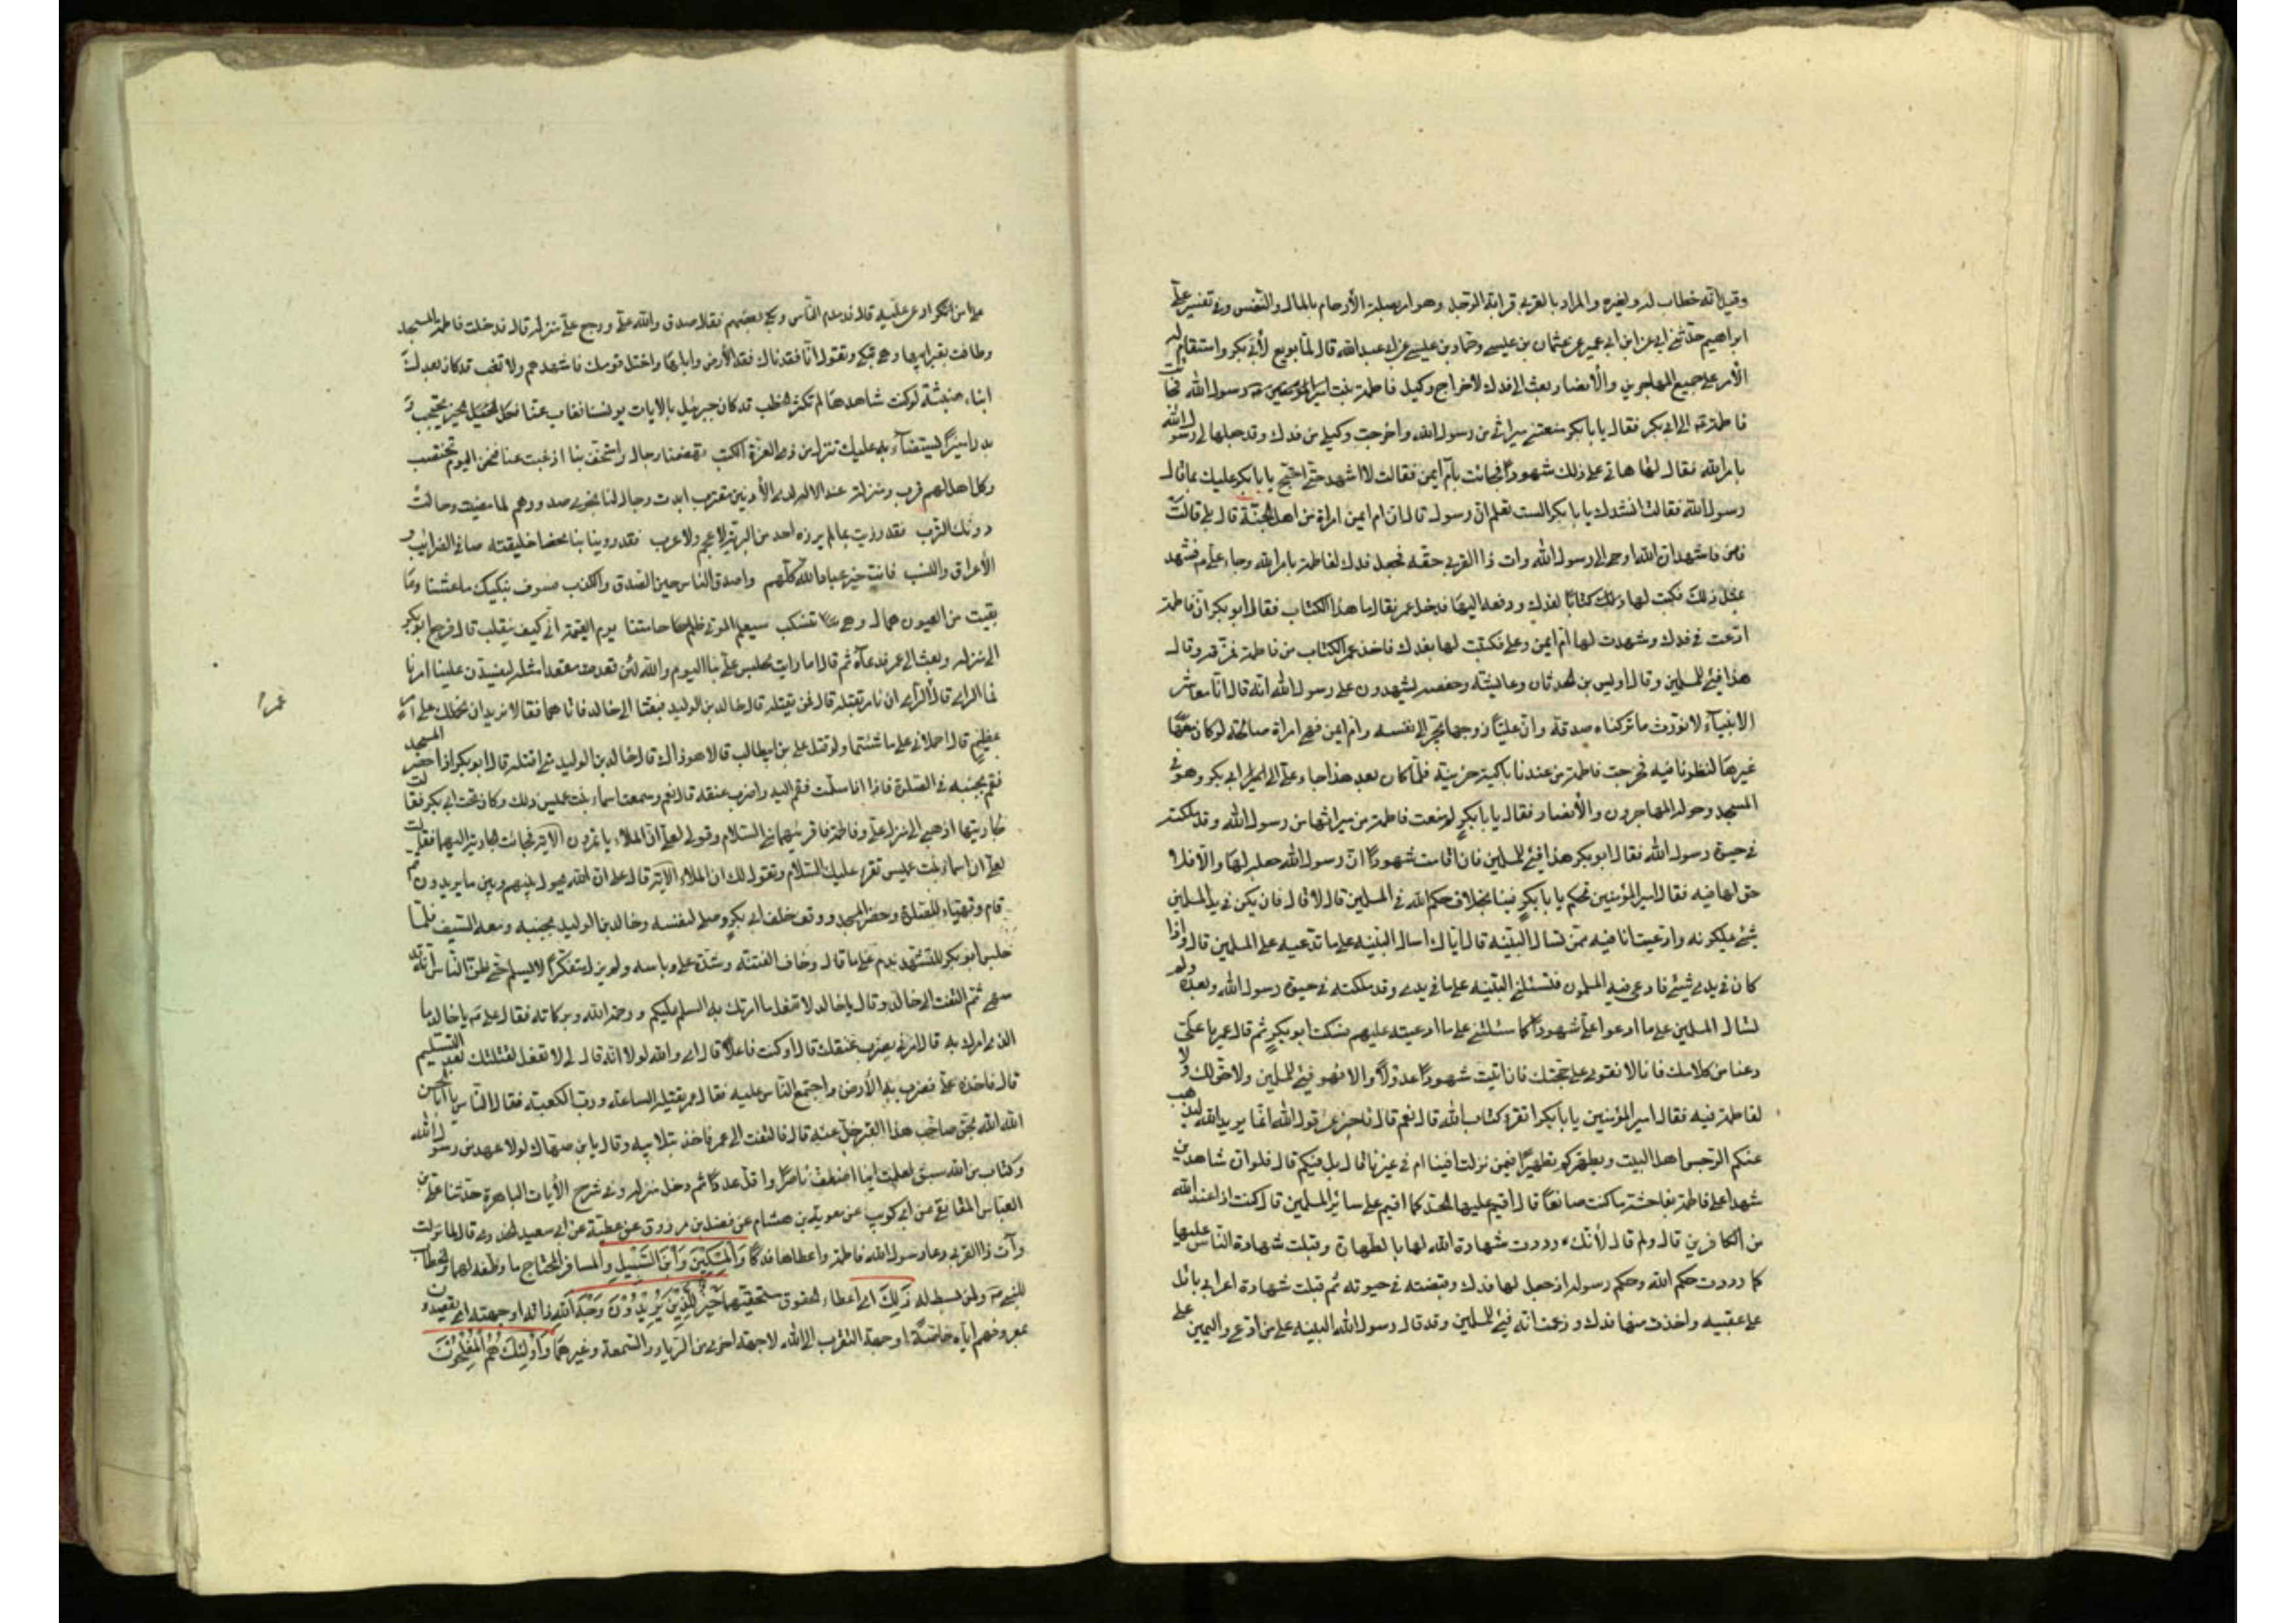 وقيل انه خطاب له ولغيره والمراد بالقربى قرابة الرجل وهو امر بصلة الأرحام بالمال والنفس وفى تفسير على
ابراهيم حدثنى ابى عن ابن ابى عمير عن عثمان بن عيسى وحماد بن عيسى عن ابى عبدالله قال لما بويع لأبى بكر واستقام له
الأمر على جميع المهاجرين والأنصار وبعث الى فدك لاخراج وكيل فاطمة بنت رسول الله فجائت
فاطمة ع الى ابى بكر فقال يا بابكر منعتنى ميراثى من رسول الله واخرجت وكيلى من فدك وقد جعلها لى رسول الله
بامر الله فقال لها هاتى على ذلك شهودًا فجائت بأم ايمن فقالت لا اشهد حتى احتج يا بابكر عليك بما قال
رسول الله فقالت انشدك يا بابكر الست تعلم ان رسول قال ان ام ايمن امراة من اهل الجنة قال بلى قالت
فاشهد ان الله اوحى الى رسول الله وات ذا القربى حقه فجعل فدك لفاطمة بامر الله وجاء على ع فشهد
بمثل ذلك فكتب لها كتابًا لفدك ودفعه اليها فدخل عمر فقال ما هذا الكتاب فقال ابوبكر ان فاطمة
ادعت فى فدك وشهدت لها ام ايمن وعلى فكتبت لها بفدك فاخذ عمر الكتاب من فاطمة فمزقه وقال
هذا فيئ للمسلمين وقال اويس بن الحدثان وعايشة وحفصة يشهدون على رسول الله انه قال انا معاشر
الانبيآء لا نورث ما تركناه صدقة وان عليًا زوجها يجر الى نفسه وام ايمن فهى امراة صالحة لو كان معها
غيرها لنظرنا فيه فخرجت فاطمة من عندنا باكية حزينة فلما كان بعد هذا جاء على الى ابى بكر وهو فى
المسجد وحوله المهاجرون والأنصار فقال يا بابكر لم منعت فاطمة من ميراثها من رسول الله وقد ملكته
فى حيوة رسول الله فقال ابوبكر هذا فيئ للمسلمين فان اقامت شهودًا ان رسول الله جعله لها والا فلا
حق لها فيه فقال امير المؤمنين تحكم يا بابكر فينا بخلاف حكم الله فى المسلمين قال لا قال فان يكن فى يد المسلمين
شئ يملكونه وادعيت انا فيه ممن تسال البينة قال اياك اسال البينة على ما تدعيه على المسلمين قال واذا
كان فى يدى شيئ فادعى فيه المسلمون فتسئلنى البينة على ما فى يدى وقد ملكته فى حيوة رسول الله وبعده ولم
تسال المسلمين على ما ادعوا على شهودًا كما سئلتنى على ما ادعيته عليهم فسكت ابوبكر ثم قال عمر يا على
دعنا من كلامك فانا لا نقوى على حجتك فان اتيت شهودًا عدولًا والا فهو فيئ للمسلمين ولا حق لك ولا
لفاطمة فيه فقال امير المؤمنين يا بابكر اتقرء كتاب الله قال نعم قال فاخبرنى عن قول الله انما يريد الله ليذهب
عنكم الرجس اهل البيت ويطهركم تطهيرًا فيمن نزلت افينا ام فى غيرنا قال بل فيكم قال فلو ان شاهدين
شهدا على فاطمة بفاحشة ما كنت صانعًا قال اقيم عليها الحد كما اقيم على سائر المسلمين قال كنت اذا عند الله
من الكافرين قال ولم قال لأنك رددت شهادة الله لها بالطهارة وقبلت شهادة الناس عليها
كما رددت حكم الله وحكم رسوله اذ جعل لها فدك وقبضته فى حيوته ثم قبلت شهادة اعرابى بائل
على عقبيه واخذت منها فدك وزعمت انه فيئ للمسلمين وقد قال رسول الله البينة على من ادعى واليمين على
على من انكر قال فدمدم الناس وبكى بعضهم فقالوا صدق والله على ورجع على منزله قال فدخلت فاطمة المسجد
وطافت بقبر ابيها وهى تبكى وتقول انا فقدناك فقد الأرض وابلها واختل قومك فاشهدهم ولا تغب قد كان بعدك
انباء وهنبثة لو كنت شاهدها لم تكثر الخطب قد كان جبرئيل بالايات يونسنا فغاب عنا فكل الخير محتجب و
بدرا منيرًا يستضآء به عليك تنزل من ذى العزة الكتب تهضمنا رجال واستخف بنا اذ غبت عنا فنحن اليوم نغتصب
وكل اهل لهم قرب ومنزلة عند الاله على الأدنين مقترب ابدت رجال لنا نجوى صدورهم لما مضيت وحالت
دونك الترب فقد رزيت بما لم يرزه احد من البرية لا عجم ولا عرب فقد رزينا بنا محضا خليقته صافى الضرائب و
الأعراق والنسب فانت خير عباد الله كلهم واصدق الناس حين الصدق والكذب فسوف نبكيك ما عشنا وما
بقيت من العيون همال وهى تنسكب سيعلم المولى ظلم حامتنا يوم القيمة انى كيف ينقلب قال فرجع ابوبكر
الى منزله وبعث الى عمر فدعاه ثم قال اما رايت مجلس على بنا اليوم والله لئن قعد مقعدا مثله ليفسدن علينا امرنا
فما الراى قال الراى ان نامر بقتله قال فمن يقتله قال خالد بن الوليد فبعثا الى خالد فاتاهما فقالا نريد ان نحملك على امر
عظيم قال احملانى على ما شئتما ولو قتل على بن ابيطالب قالا هو ذاك قال خالد بن الوليد متى اقتله قال ابوبكر اذا حضر المسجد
فقم بجنبه فى الصلوة فاذا انا سلمت فقم اليه واضرب عنقه قال نعم وسمعت اسماء بنت عميس ذلك وكانت تحت ابى بكر فقالت
لجاريتها اذهبى الى منزل على وفاطمة فاقرئيهما السلام وقولى لعلى ان الملاء ياتمرون الاية فجائت الجارية اليهما فقالت
لعلى ان اسماء بنت عميس تقرء عليك السلام وتقول لك ان الملاء الاية قال على ان الله يحول بينهم وبين ما يريدون ثم
قام وتهياء للصلوة وحضر المسجد ووقف خلف ابى بكر وصلى لنفسه وخالد بن الوليد بجنبه ومعه السيف فلما
جلس ابوبكر للتشهد ندم على ما قال وخاف الفتنة وشدة على وباسه ولم يزل متفكرًا لا يسلم حتى ظن الناس انه قد
سهى ثم التفت الى خالد وقال يا خالد لا تفعل ما امرتك به السلم عليكم ورحمة الله وبركاته فقال على ع يا خالد ما
الذى امرك به قال امرنى بضرب عنقك قال اوكنت فاعلًا قال اى والله لولا انه قال لى لا تفعل لقتلتك بعد التسليم
قال فاخذه على فضرب به الأرض واجتمع الناس عليه فقال عمر يقتله الساعة ورب الكعبة فقال الناس يا اباالحسن
الله الله بحق صاحب هذا القبر فخلى عنه قال فالتفت الى عمر فاخذ بتلابيبه وقال يا بن صهاك لولا عهد من رسول الله
وكتاب من الله سبق لعلمت اينا اضعف ناصرًا واقل عددًا ثم دخل منزله وفى شرح الايات الباهرة حدثنا محمد بن
العباس المقانعى عن ابى كريب عن معوية بن هشام عن فضل بن مرزوق عن عطية عن ابى سعيد الخدرى قال لما نزلت
وآت ذا القربى دعا رسول الله فاطمة واعطاها فدكًا وَالْمِسْكِينَ وَابْنَ السَّبِيلِ والمسافر المحتاج ما وظف لهما والخطاب
للنبى ص ولمن بسط له ذَلِكَ اى اعطاء الحقوق مستحقيها خَيْرٌ لِلَّذِينَ يُرِيدُونَ وَجْهَ اللّهِ ذاته او جهته اى يقصدون
بمعروفهم اياه خالصًا او جهة التقرب الى الله لا جهة اخرى من الرياء والسمعة وغيرهما وَأُولَئِكَ هُمُ الْمُفْلِحُونَ